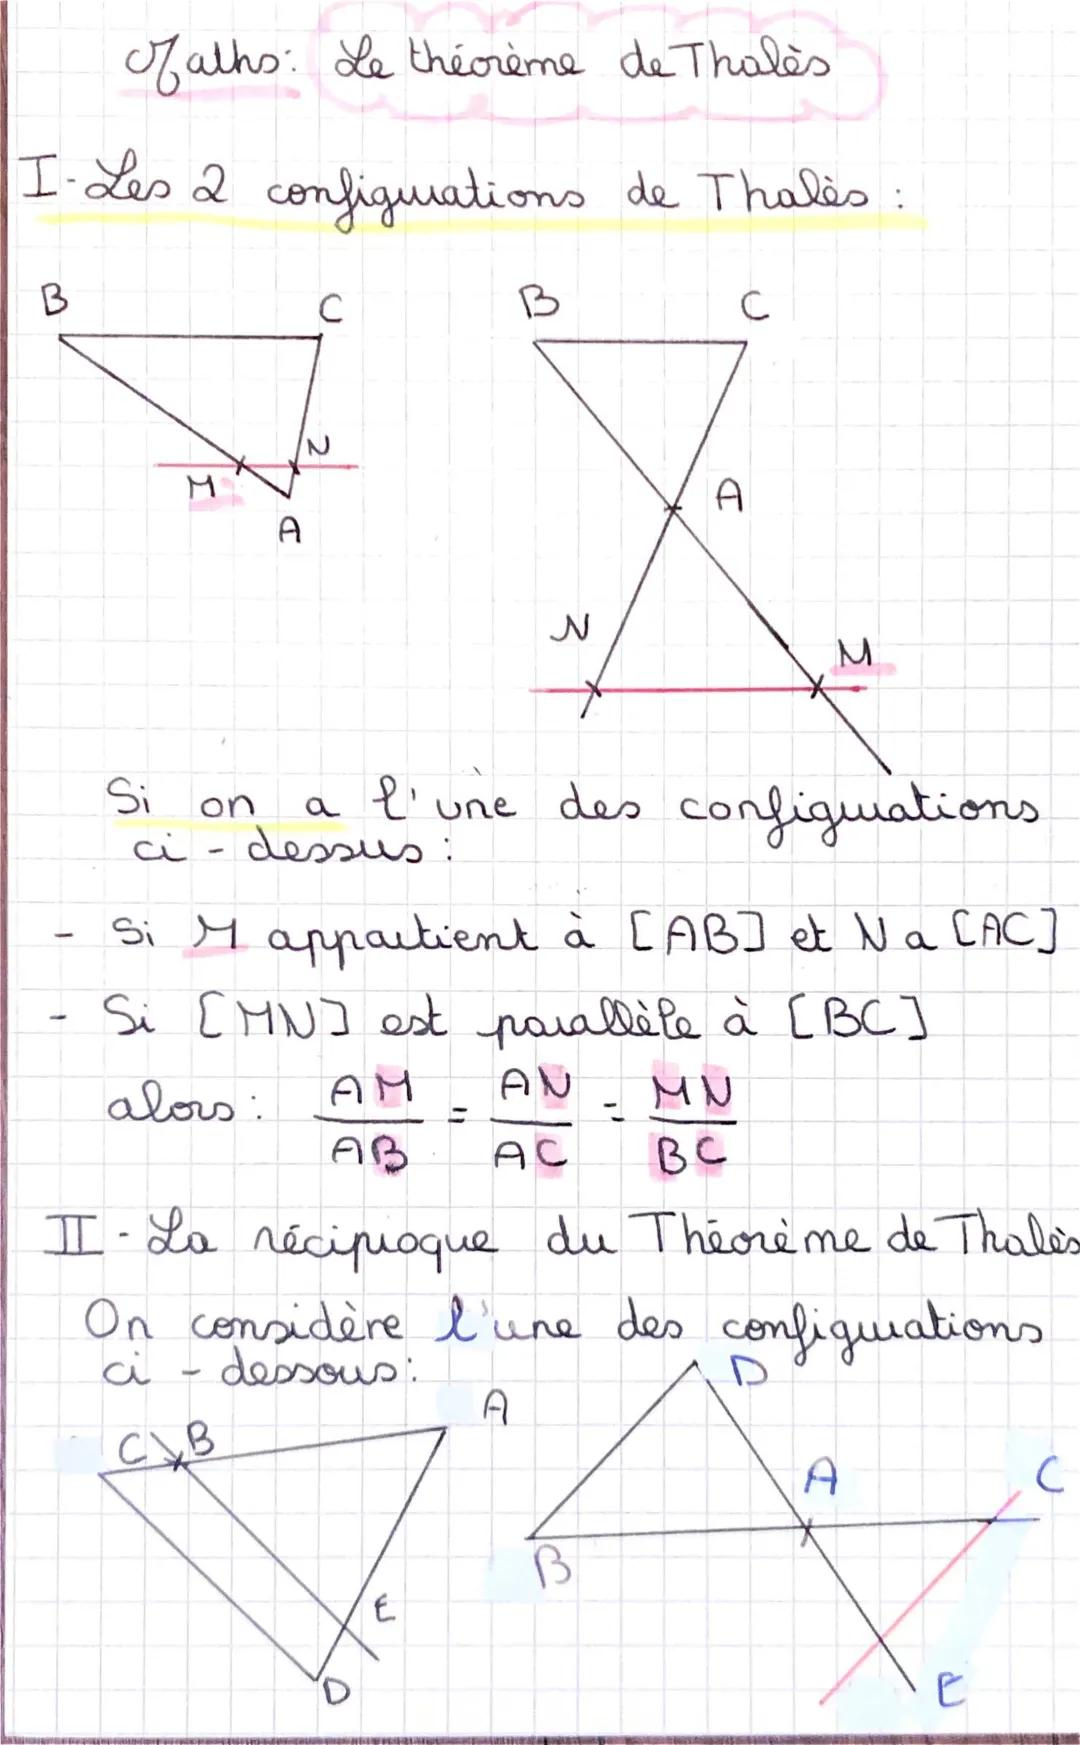 Maths: Le théorème de Thalès
I - Les 2 configurations de Thalès :
B C B C
N
M
A
A
N
M
Si on a l'une des configurations
ci - dessus :
- Si M appartient à [AB] et N a [AC]
- Si [MN] est parallèle à [BC]
alors : AM/AB = AN/AC = MN/BC
II - La réciproque du Théorème de Thalès
On considère l'une des configurations
ci - dessous :
D
A
C B
A C
B
E
D
E